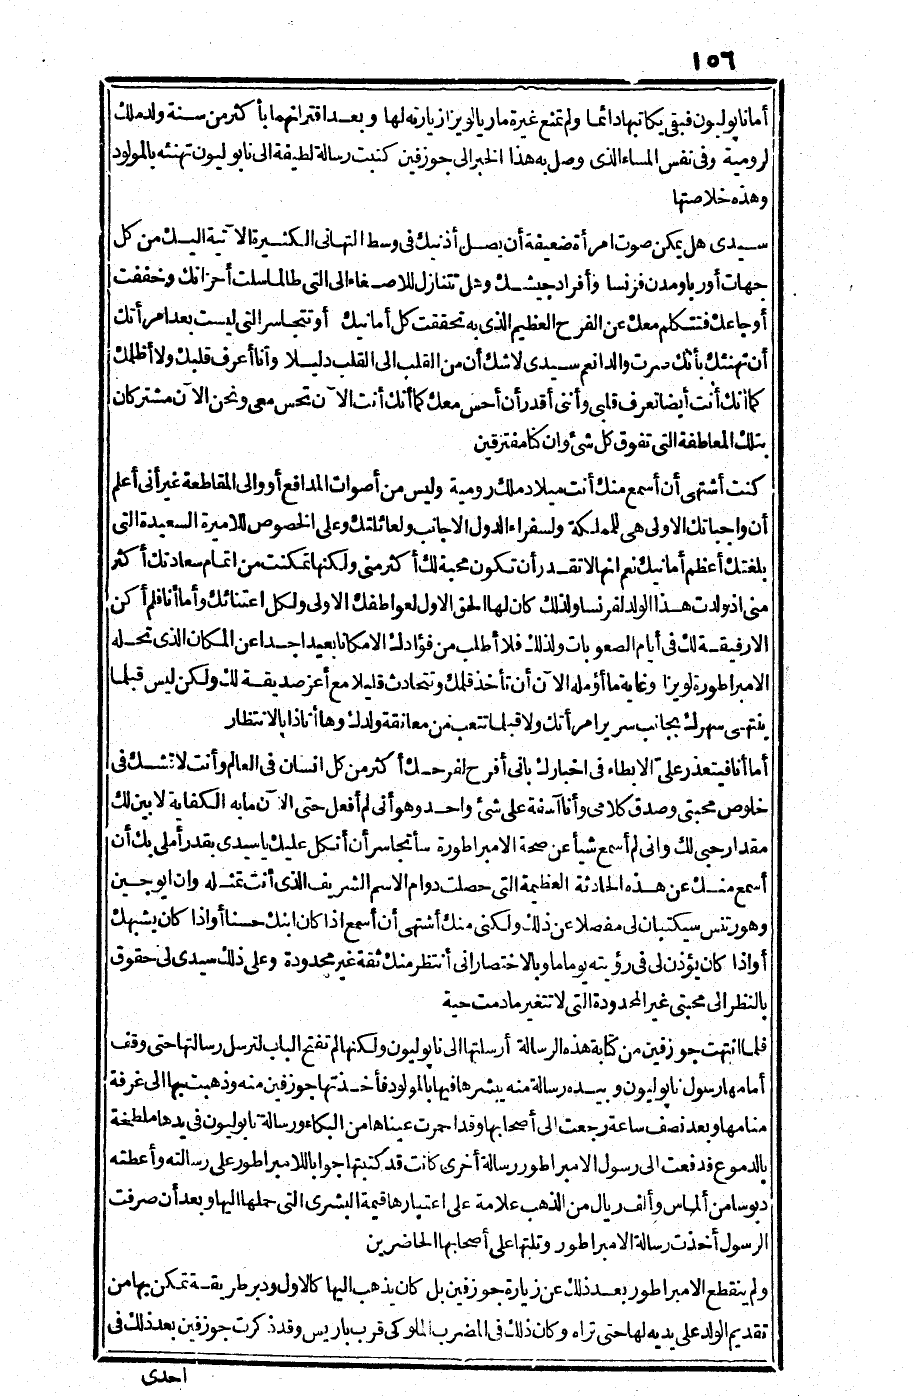 ١٥٦
أما نابوليون فبقي يكاتبها دائما ولم تمنع غيرة ماريا لويزا زيارته لها وبعد اقترانهما بأكثر من سنة ولد ملك
لرومية وفى نفس المساء الذى وصل به هذا الخبر الى جوزفين كتبت رسالة لطيفة الى نابوليون تهنئه بالمولود
وهذه خلاصتها
سيدى هل يمكن صوت امرأة ضعيفة أن يصل أذنيك فى وسط التهانى الكثيرة الآتية اليك من كل
جهات أوربا ومدن فرنسا وأفراد جيشك وهل تتنازل للاصغاء الى التى طالما سلت أحزانك وخففت
أوجاعك فتتكلم معك عن الفرح العظيم الذى به تحققت كل أمانيك أو تتجاسر التى ليست بعد امرأتك
أن تهنئك بأنك صرت والدا نعم سيدى لاشك أن من القلب الى القلب دليلا وأنا أعرف قلبك ولا أظلمك
كما أنك أنت أيضا تعرف قلبى وأننى أقدر أن أحس معك كما أنك أنت الآن تحس معى ونحن الآن مشتركان
بتلك المعاطفة التى تفوق كل شئ وان كنا مفترقين
كنت أشتهى أن أسمع منك أنت ميلاد ملك رومية وليس من أصوات المدافع أو والى المقاطعة غير أنى أعلم
أن واجباتك الاولى هى للمملكة ولسفراء الدول الاجانب ولعائلتك وعلى الخصوص للاميرة السعيدة التى
بلغتك أعظم أمانيك نعم انها لا تقدر أن تكون محبة لك أكثر منى ولكنها تمكنت من اتمام سعادتك أكثر
منى اذ ولدت هذا الولد لفرنسا ولذلك كان لها الحق الاول لعواطفك الاولى ولكل اعتنائك وأما أنا فلم أكن
الا رفيقة لك فى أيام الصعوبات ولذلك فلا أطلب من فؤادك الا مكانا بعيدا جدا عن المكان الذى تحله
الامبراطورة لويزا وغاية ما أؤمله الآن أن تأخذ قلمك وتتحادث قليلا مع أعز صديقة لك ولكن ليس قبلما
ينتهى سهرك بجانب سرير امرأتك ولا قبلما تتعب من معانقة ولدك وها أنا ذا بالانتظار
أما أنا فيتعذر على الابطاء فى اخبارك بانى أفرح لفرحك أكثر من كل انسان فى العالم وأنت لا تشك فى
خلوص محبتى وصدق كلامى وأنا آسفة على شئ واحد وهو أنى لم أفعل حتى الآن ما به الكفاية لابين لك
مقدار حبى لك وانى لم أسمع شيأ عن صحة الامبراطورة سأتجاسر أن أتكل عليك يا سيدى بقدر أملى بك أن
أسمع منك عن هذه الحادثة العظيمة التى حصلت دوام الاسم الشريف الذى أنت تمثله وان ايوجين
وهورتنس سيكتبان لى مفصلا عن ذلك ولكنى منك أشتهى أن أسمع اذا كان ابنك حسنا أو اذا كان يشبهك
أو اذا كان يؤذن لى فى رؤيته يوما ما وبالاختصار انى أنتظر منك ثقة غير محدودة وعلى ذلك سيدى لى حقوق
بالنظر الى محبتى غير المحدودة التى لا تتغير ما دمت حية
فلما انتهت جوزفين من كتابة هذه الرسالة أرسلتها الى نابوليون ولكنها لم تفتح الباب لترسل رسالتها حتى وقف
أمامها رسول نابوليون وبيده رسالة منه يبشرها فيها بالمولود فأخذتها جوزفين منه وذهبت بها الى غرفة
منامها وبعد نصف ساعة رجعت الى أصحابها وقد احمرت عيناها من البكاء ورسالة نابوليون فى يدها ملطخة
بالدموع فدفعت الى رسول الامبراطور رسالة أخرى كانت قد كتبتها جوابا للامبراطور على رسالته وأعطته
دبوسا من ألماس وألف ريال من الذهب علامة على اعتبارها قيمة البشرى التى حملها اليها وبعد أن صرفت
الرسول أخذت رسالة الامبراطور وتلتها على أصحابها الحاضرين
ولم ينقطع الامبراطور بعد ذلك عن زيارة جوزفين بل كان يذهب اليها كالاول ودبر طريقة تمكن بها من
تقديم الولد على يديه لها حتى تراه وكان ذلك فى المضرب الملوكى قرب باريس وقد ذكرت جوزفين بعد ذلك فى
احدى